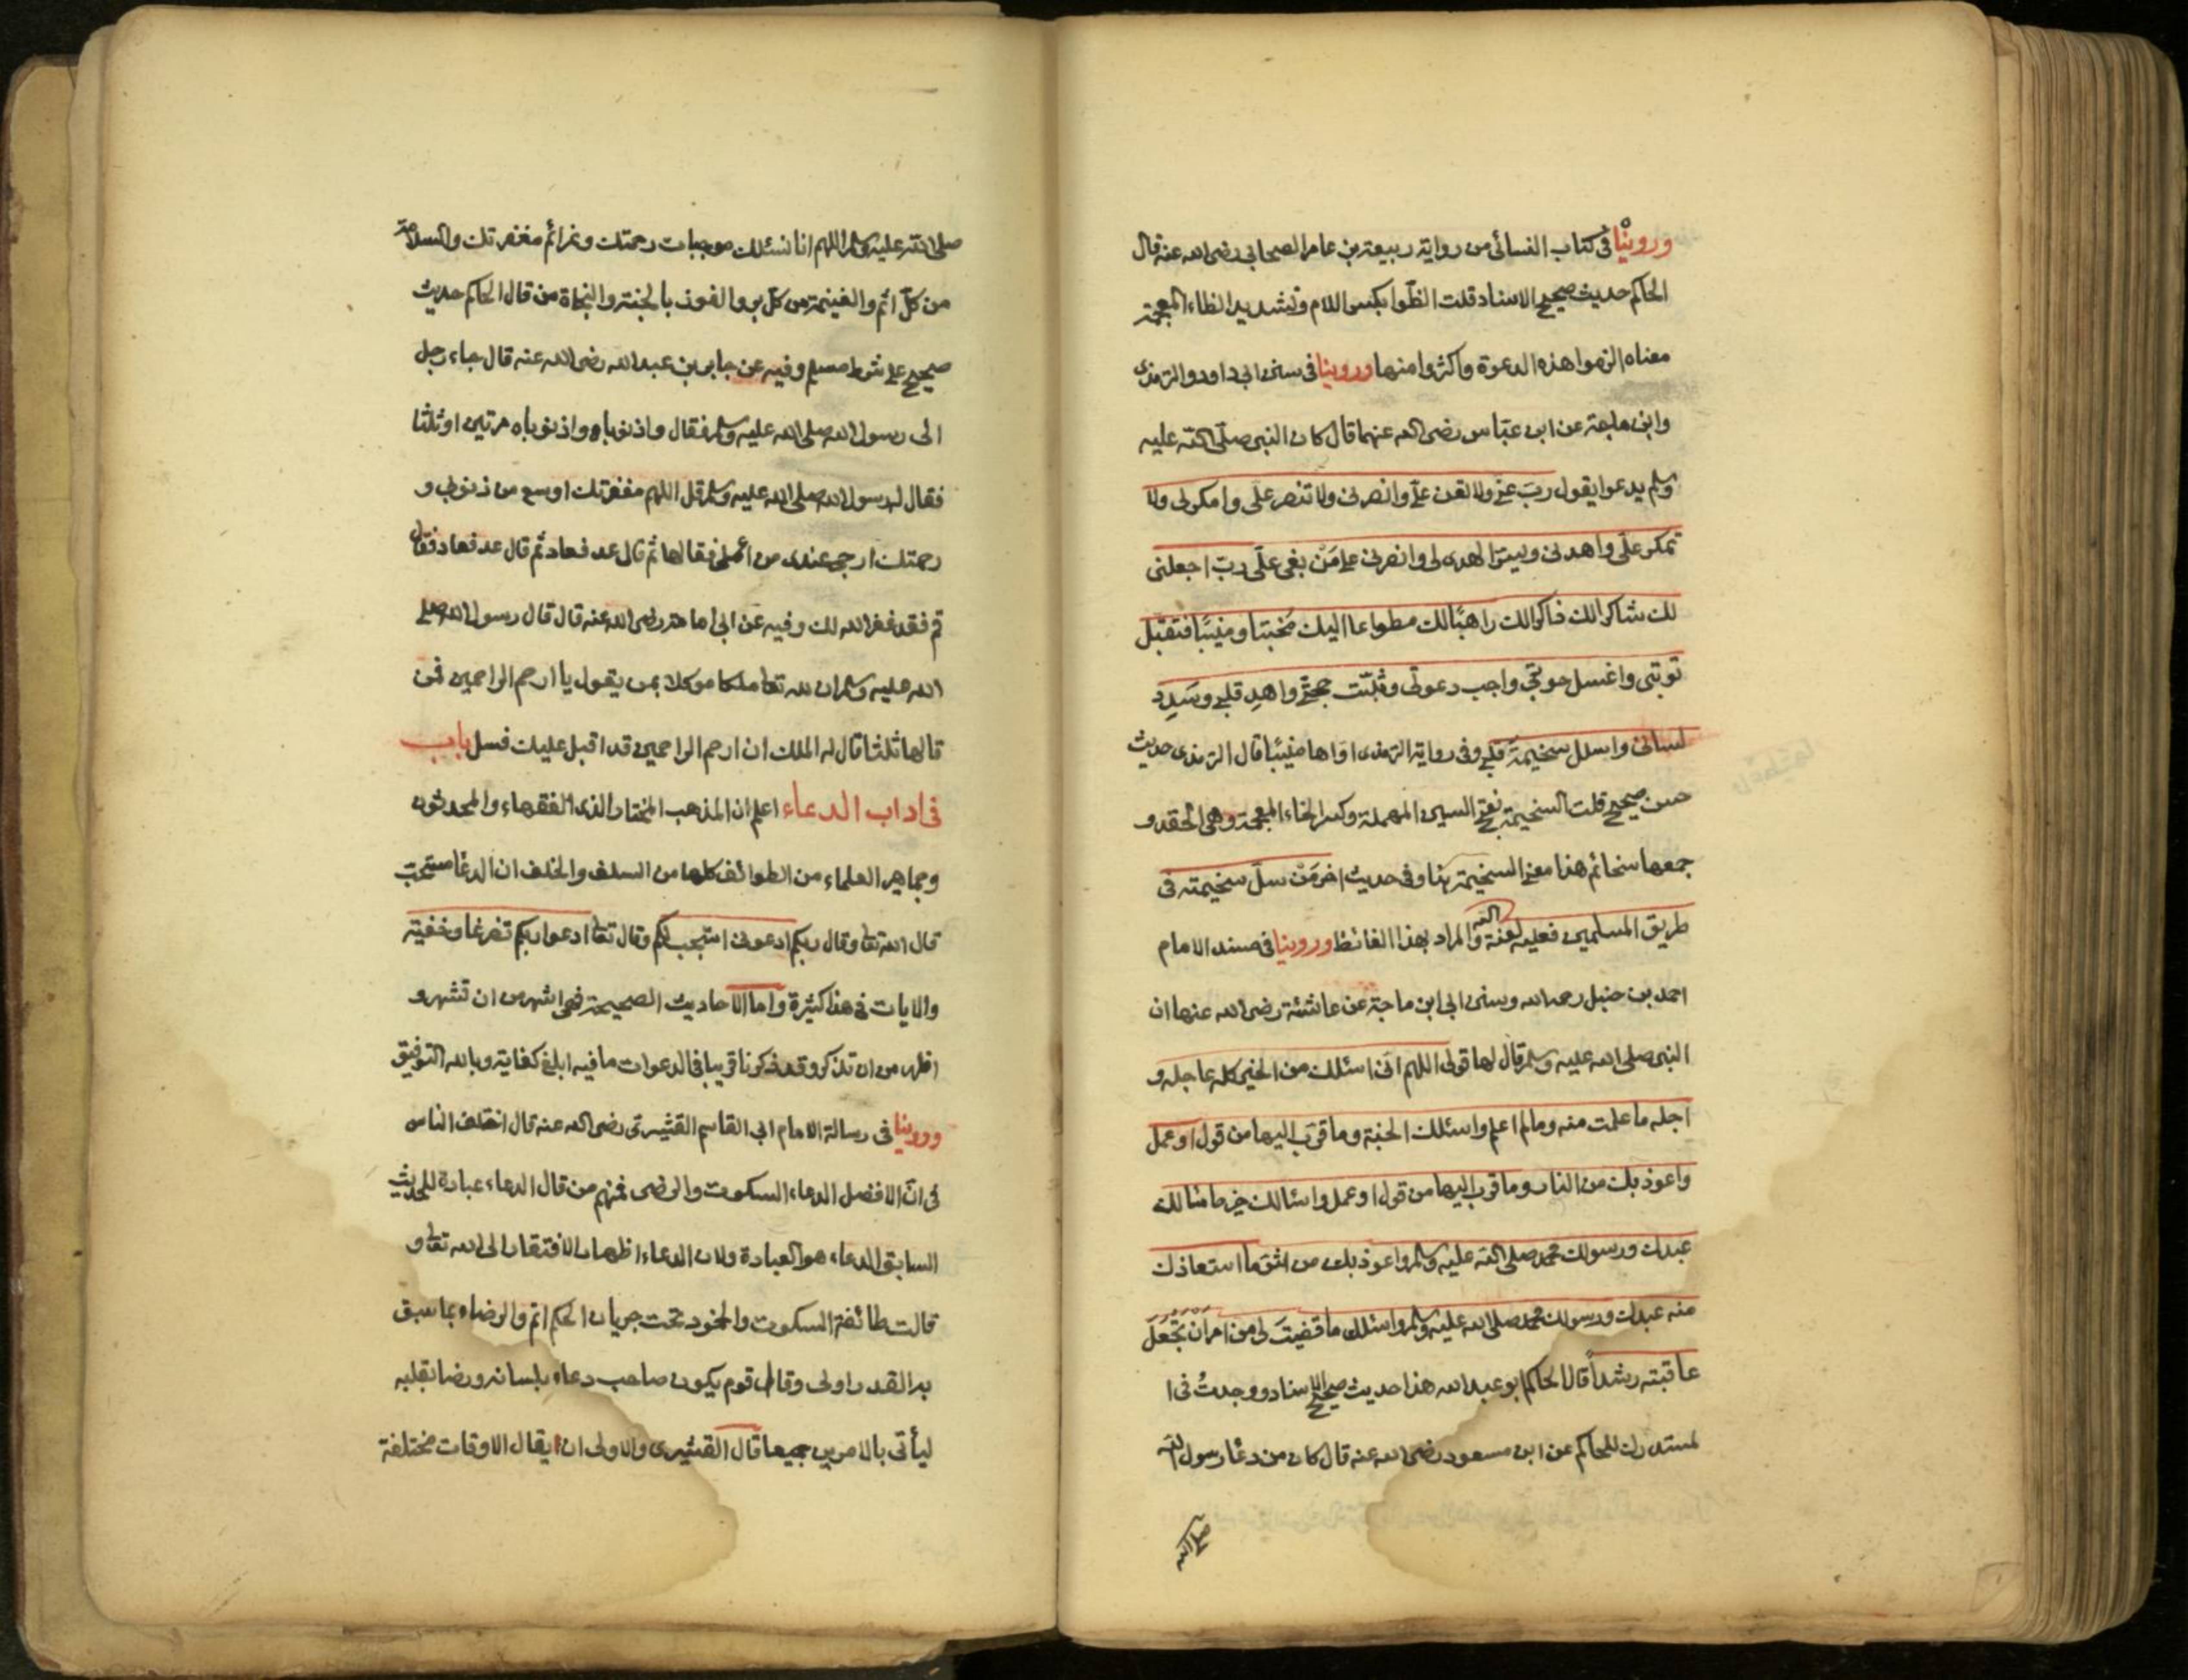 وروينا في كتاب النسائي من رواية ربيعة بن عامر الصحابي رضي الله عنه قال
الحاكم حديث صحيح الاسناد قلت الظّوا بكسر اللام وتشديد الظاء المعجمة
معناه الزموا هذه الدعوة واكثروا منها وروينا في سنن ابي داود والترمذي
وابن ماجة عن ابن عبّاس رضي الله عنهما قال كان النبي صلّى الله عليه
وسلم يدعوا يقول ربّ عنّي ولا تعن عليّ وانصرني ولا تنصر علىّ وامكر لي ولا
تمكر علىّ واهدني ويسّر الهدى لي وانصرني على مَنْ بغى علىّ ربّ اجعلني
لك شاكرا لك ذاكرا لك راهبًا لك مطواعا اليك مُخبتا ومنيبًا فتقبّل
توبتي واغسل حوبتي واجب دعوتي وثبّت حجتي واهدِ قلبي وسَدِد
لساني واسلل سخيمةَ قلبي وفي رواية الترمذي اوّاها منيبًا قال الترمذي حديث
حسن صحيح قلت السخيمة بفتح السين المهملة وكسر الخاء المعجمة وهي الحقد و
جمعها سخائم هذا معنى السخيمة هنا وفي حديث اخر مَنْ سلّ سخيمته في
طريق المسلمين فعليه لعنة الله والمراد بهذا الغائط وروينا في مسند الامام
احمد بن حنبل رحمه الله وسنن ابي ابن ماجة عن عائشة رضي الله عنها ان
النبي صلى الله عليه وسلم قال لها قولي اللهم انّي اسئلك من الخير كله عاجله و
اجله ما علمت منه وما لم اعلم واسئلك الجنة وما قرّب اليها من قول او عمل
واعوذ بك من النار وما قرب اليها من قول او عمل واسئالك خير ما سالك
عبدك ورسولك محمد صلى الله عليه وسلم واعوذ بك من شرّ ما استعاذك
منه عبدك ورسولك محمد صلى الله عليه وسلم واسئلك ما قضيتَ لي من امر ان تجعلَ
عاقبته رشداً قال الحاكم ابو عبد الله هذا حديث صحيح الاسناد ووجدتُ في ا
لمستدرك للحاكم عن ابن مسعود رضي الله عنه قال كان من دعا رسول الله
صلى الله
صلى الله عليه وسلم اللهم انا نسئلك موجبات رحمتك وعزائم مغفرتك والسلامة
من كلّ اثم والغنيمة من كلّ بر والفوز بالجنة والنجاة من قال الحاكم حديث
صحيح على شرط مسلم وفيه عن جابر بن عبد الله رضي الله عنه قال جاء رجل
الى رسول الله صلى الله عليه وسلم فقال واذنوباه واذنوباه مرتين او ثلثا
فقال له رسول الله صلى الله عليه وسلم قل اللهم مغفرتك اوسع من ذنوبي و
رحمتك ارجى عندي من عملي فقالها ثم قال عد فعاد ثم قال عد فعاد فقال
قم فقد غفر الله لك وفيه عن ابي امامة رضي الله عنه قال قال رسول الله صلى
الله عليه وسلم ان لله تعا ملكا موكلا بمن يقول يا ارحم الراحمين فمن
قالها ثلثا قال له الملك ان ارحم الراحمين قد اقبل عليك فسل باب
في اداب الدعاء اعلم ان المذهب المختار الذي الفقهاء والمحدثون
وجماهير العلماء من الطوائف كلها من السلف والخلف ان الدعا مستحبّ
قال الله تعا وقال ربكم ادعوني استجب لكم وقال تعا ادعوا ربكم تضرعا وخفية
والايات في هذا كثيرة واما الاحاديث الصحيحة فهي اشهر من ان تشهر و
اظهر من ان تذكر وقد ذكرنا قريبا في الدعوات ما فيه ابلغ كفاية وبالله التوفيق
وروينا في رسالة الامام ابي القاسم القشيري رضي الله عنه قال اختلف الناس
في انّ الافضل الدعاء السكوت والرضى فمنهم من قال الدعاء عبادة للحديث
السابق الدعاء هو العبادة ولان الدعاء اظهار الافتقار الى الله تعا و
قالت طائفة السكوت والخمود تحت جريان الحكم اتم والرضاء بما سبق
به القدر اولى وقال قوم يكون صاحب دعاء بلسانه ورضا بقلبه
ليأتي بالامرين جميعا قال القشيري والاولى ان يقال الاوقات مختلفة